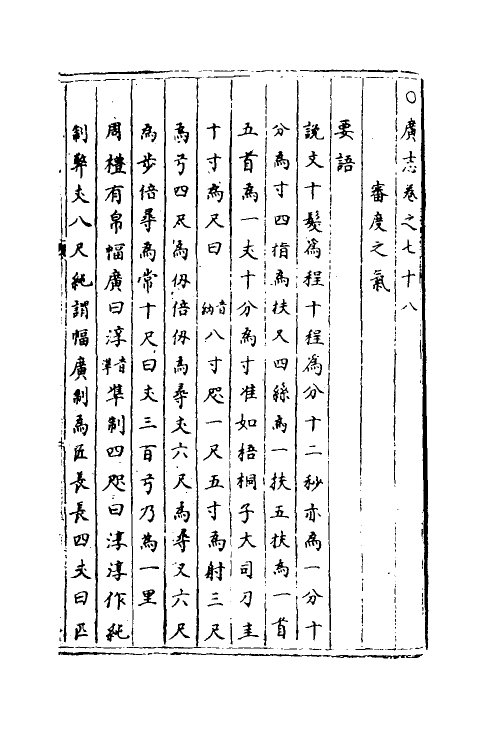 ○廣志卷之七十八
審度之氣
要語
說文十髮為程十程為分十二秒亦為一分十
分為寸四指為扶又四絲為一扶五扶為一首
五首為一丈十分為寸准如梧桐子大司刀圭
十寸為尺曰 音納八寸咫一尺五寸為射三尺
為弓四尺為仞倍仞為尋丈六尺為尋又六尺
為步倍尋為常十尺曰丈三百弓乃為一里
周禮有帛幅廣曰淳音準準制四咫曰淳淳作純
制幣丈八尺純謂幅廣制為匹長長四丈曰匹